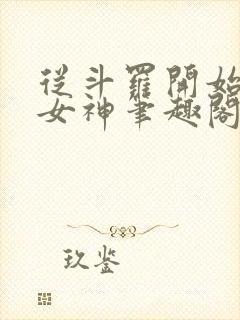 從斗羅開始
女神筆趣閣
玖鉴